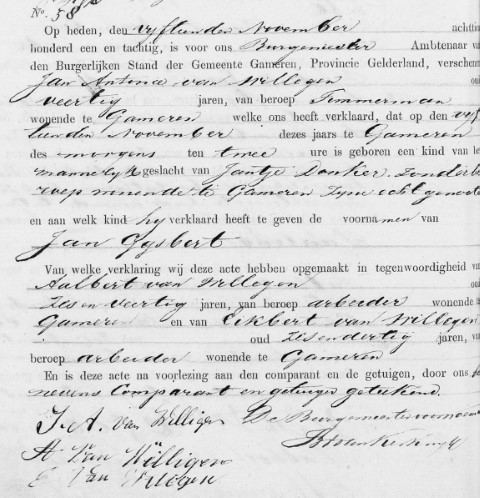 No. 58
Op heden, den vyftienden November achttien
honderd een en tachtig, is voor ons Burgemeester Ambtenaar van
den Burgerlijken Stand der Gemeente Gameren, Provincie Gelderland, verschenen
Jan Antonie van Willegen oud
veertig jaren, van beroep Timmerman
wonende te Gameren welke ons heeft verklaard, dat op den vyf
tienden November dezes jaars te Gameren
des morgens ten twee ure is geboren een kind van het
mannelyk geslacht van Jantje Donker, zonder be
roep wonende te Gameren zyne echtgenoote
en aan welk kind hy verklaard heeft te geven de voornamen van
Jan Gysbert
Van welke verklaring wij deze acte hebben opgemaakt in tegenwoordigheid van
Aalbert van Willegen oud
zes en veertig jaren, van beroep arbeider wonende te
Gameren en van Eckbert van Willegen
oud zes en dertig jaren, van
beroep arbeider wonende te Gameren
En is deze acte na voorlezing aan den comparant en de getuigen, door ons be
nevens Comparant en getuigen geteekend.
J. A. van Willigen De Burgemeester voornoemd
A van Willigen
E van Willegen